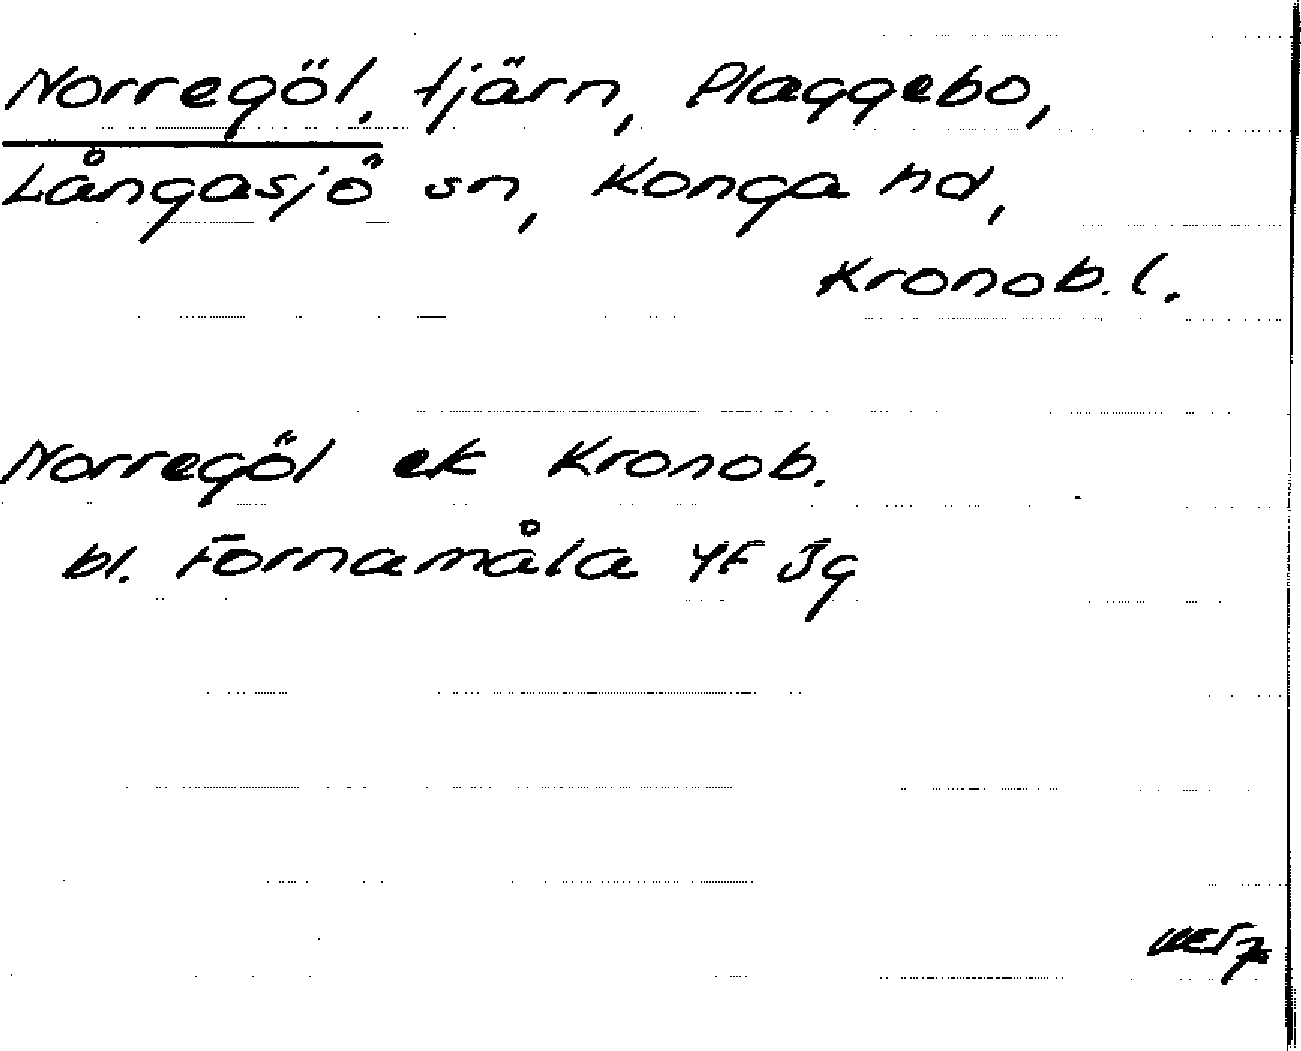 Norregöl, tjärn, Plaggebo,
Långasjö sn, Konga hd,
Kronob. l.
Norregöl ek Kronob.
bl. Fornamåla 4F 3g